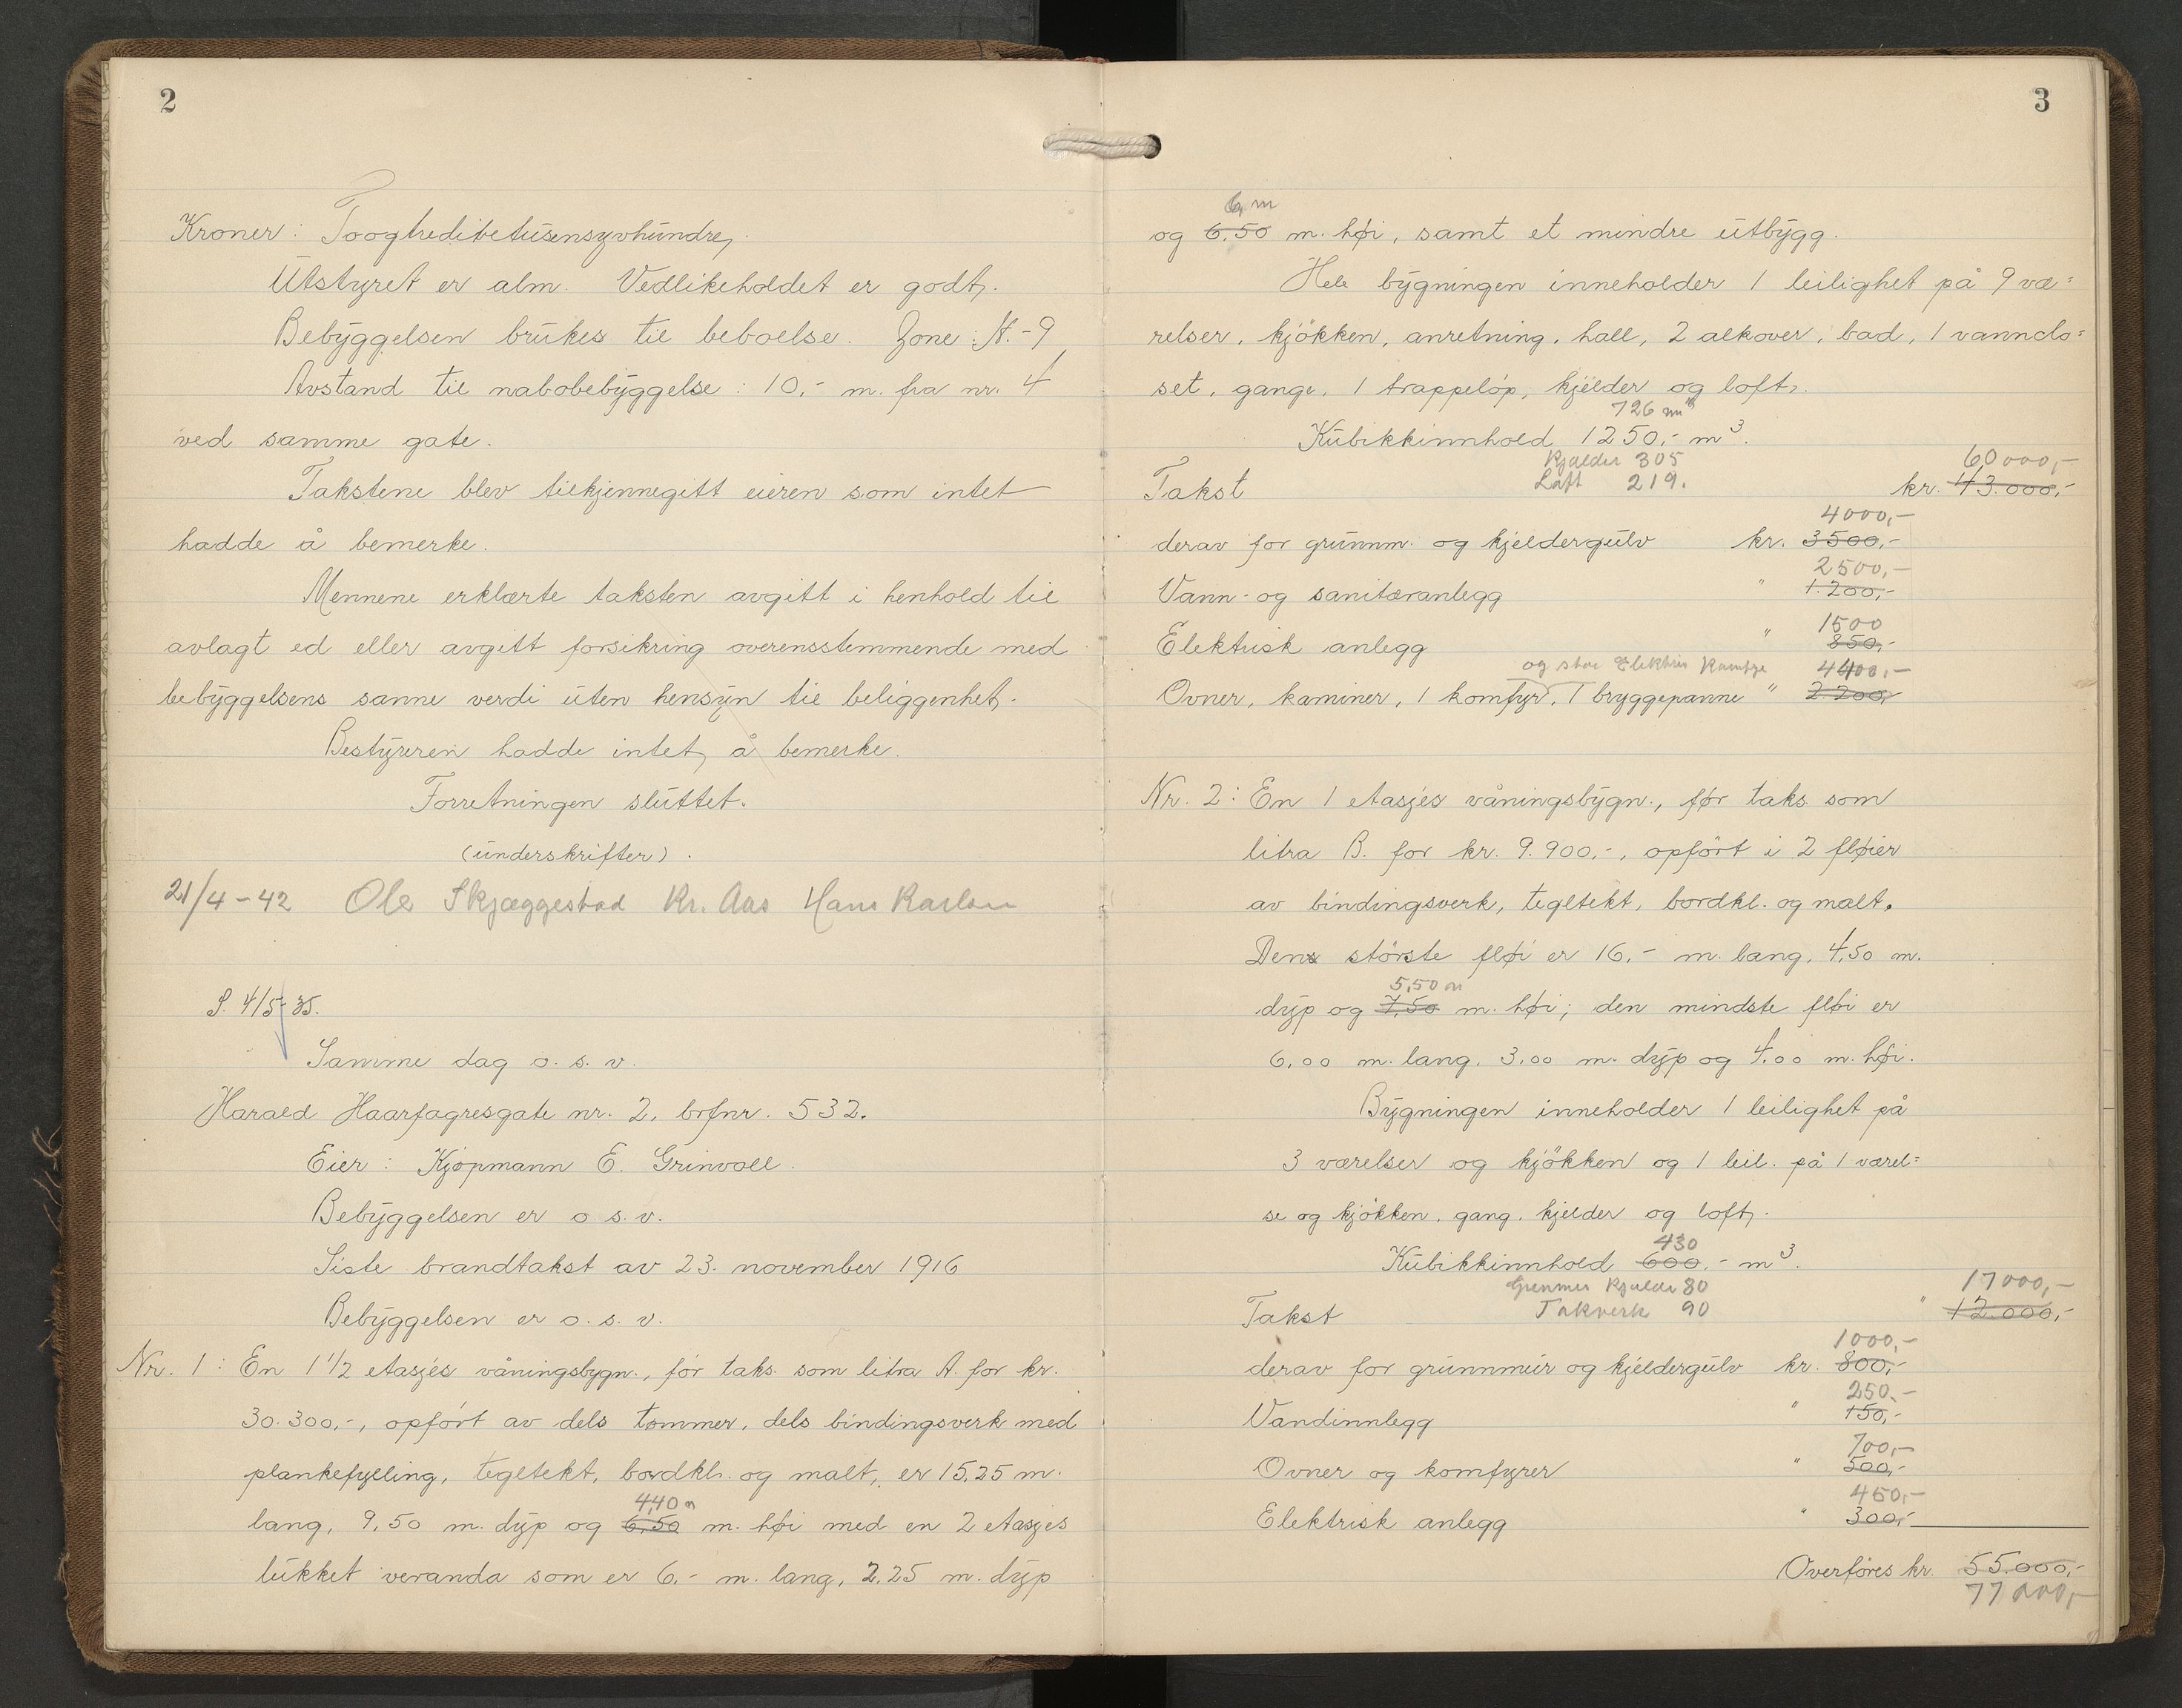 2
Kroner: Toogtredivetusensyvhundre,
Utstyret er alm. Vedlikeholdet er godt.
Bebyggelsen brukes til beboelse. Zone: N.-9
Avstand til nabobebyggelse: 10,- m. fra nr. 4
ved samme gate.
Takstene blev tilkjennegitt eieren som intet
hadde å bemerke.
Mennene erklærte taksten avgitt i henhold til
avlagt ed eller avgitt forsikring overensstemmende med
bebyggelsens sanne verdi uten hensyn til beliggenhet.
Bestyreren hadde intet å bemerke.
Forretningen sluttet.
(underskrifter).
21/4-42 Ole Skjæggestad Kr. Aas Hans Karlsen
S. 4/5-35.
Samme dag o. s. v.
Harald Haarfagresgate nr. 2, brfnr. 532.
Eier: Kjøpmann E. Grinvoll.
Bebyggelsen er o. s. v.
Siste brandtakst av 23. november 1916
Bebyggelsen er o. s. v.
Nr. 1: En 1 1/2 etasjes våningsbygn., før taks. som litra A. for kr.
30.300,-, opført av dels tømmer, dels bindingsverk med
plankefylling, tegltekt, bordkl. og malt, er 15,25 m.
4,40 m
lang, 9,50 m. dyp og 6,50 m. høi med en 2 etasjes
lukket veranda som er 6,- m. lang, 2,25 m. dyp
3
6, m
og 6,50 m. høi, samt et mindre utbygg.
Hele bygningen inneholder 1 leilighet på 9 væ=
relser, kjøkken, anretning, hall, 2 alkover, bad, 1 vannclo=
set, gange, 1 trappeløp, kjelder og loft.
726 m³
Kubikkinnhold 1250,- m³.
Kjælder 305
60000,-
Takst Loft 219. kr. 43.000,-
4000,-
derav for grunnm. og kjeldergulv kr. 3500,-
2500,-
Vann- og sanitæranlegg " 1.200,-
1500
Elektrisk anlegg " 850,-
og stor Elektris Komfyr 4400,-
Ovner, kaminer, 1 komfyr, 1 bryggepanne " 2.200,-
Nr. 2: En 1 etasjes våningsbygn., før taks. som
litra B. for kr. 9.900,-, opført i 2 fløier
av bindingsverk, tegltekt, bordkl. og malt.
Den største fløi er 16,- m. lang, 4,50 m.
5,50 m
dyp og 7,50 m. høi; den mindste fløi er
6,00 m. lang, 3,00 m. dyp og 4,00 m. høi.
Bygningen inneholder 1 leilighet på
3 værelser og kjøkken og 1 leil. på 1 værel=
se og kjøkken, gang, kjelder og loft.
430
Kubikkinnhold 600,- m³.
Kjelder 80
17000,-
Takst Takverk 90 " 12.000,-
1000,-
derav for grunnmur og kjeldergulv kr. 800,-
250,-
Vandinnlegg " 150,-
700,-
Ovner og komfyrer " 500,-
450,-
Elektrisk anlegg " 300,-
Overføres kr. 55.000,-
77000,-